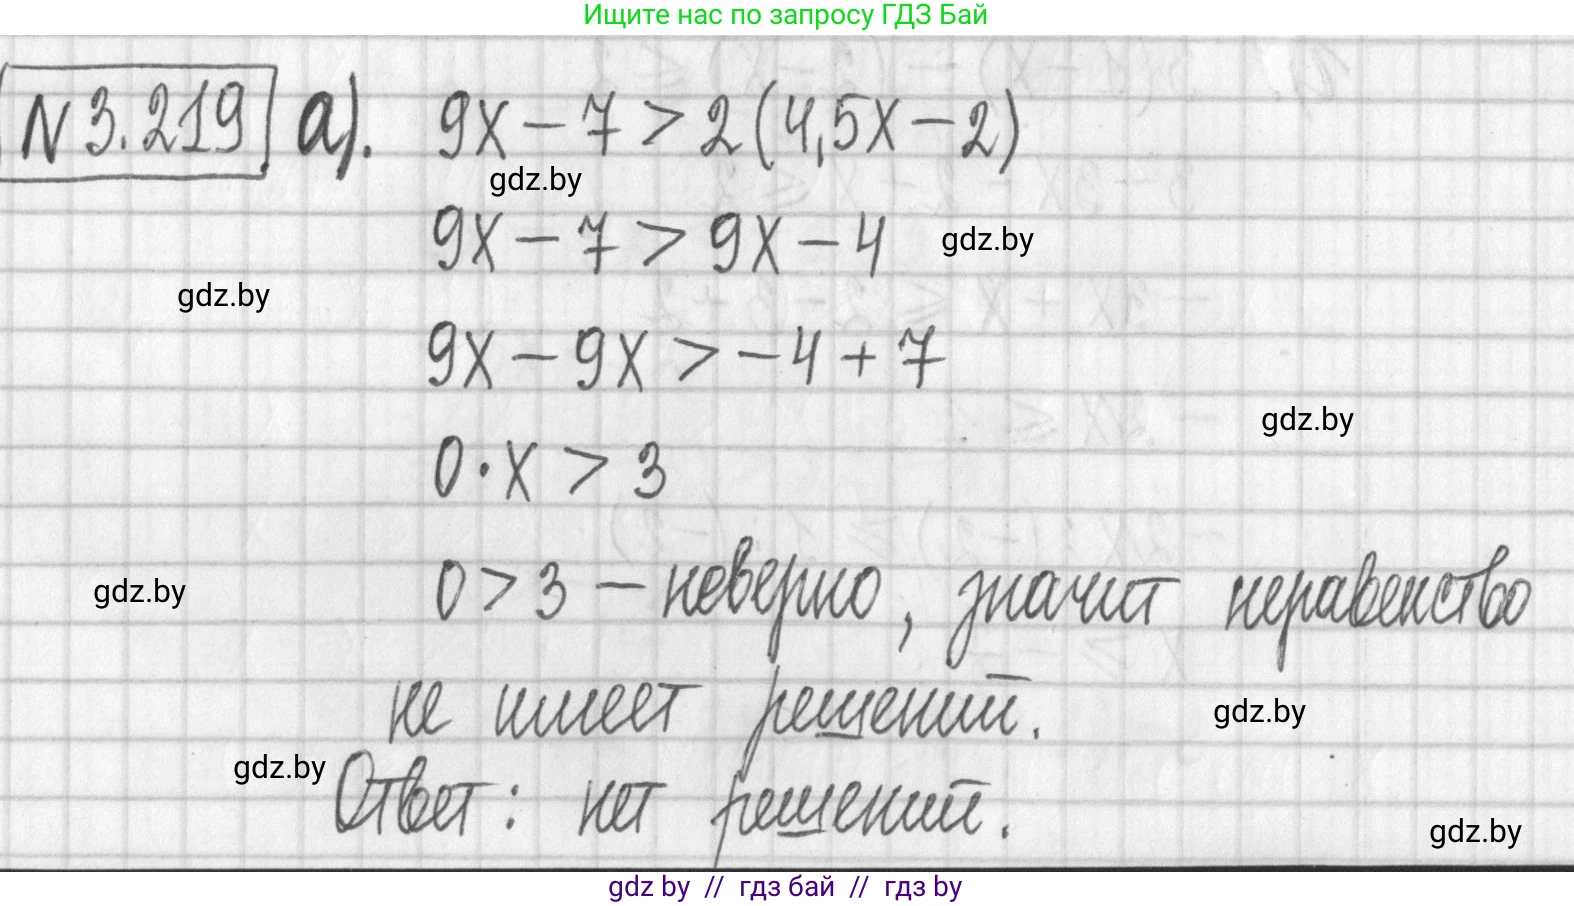 Ищите нас по запросу ГДЗ Бай
N 3.219 а). 9x - 7 > 2(4,5x - 2)
gdz.by
9x - 7 > 9x - 4
gdz.by
gdz.by
9x - 9x > -4 + 7
gdz.by
0 · x > 3
0 > 3 - неверно, значит неравенство
gdz.by
не имеет решений.
gdz.by
gdz.by
Ответ: нет решений.
gdz.by
gdz by // гдз бай // gdz by